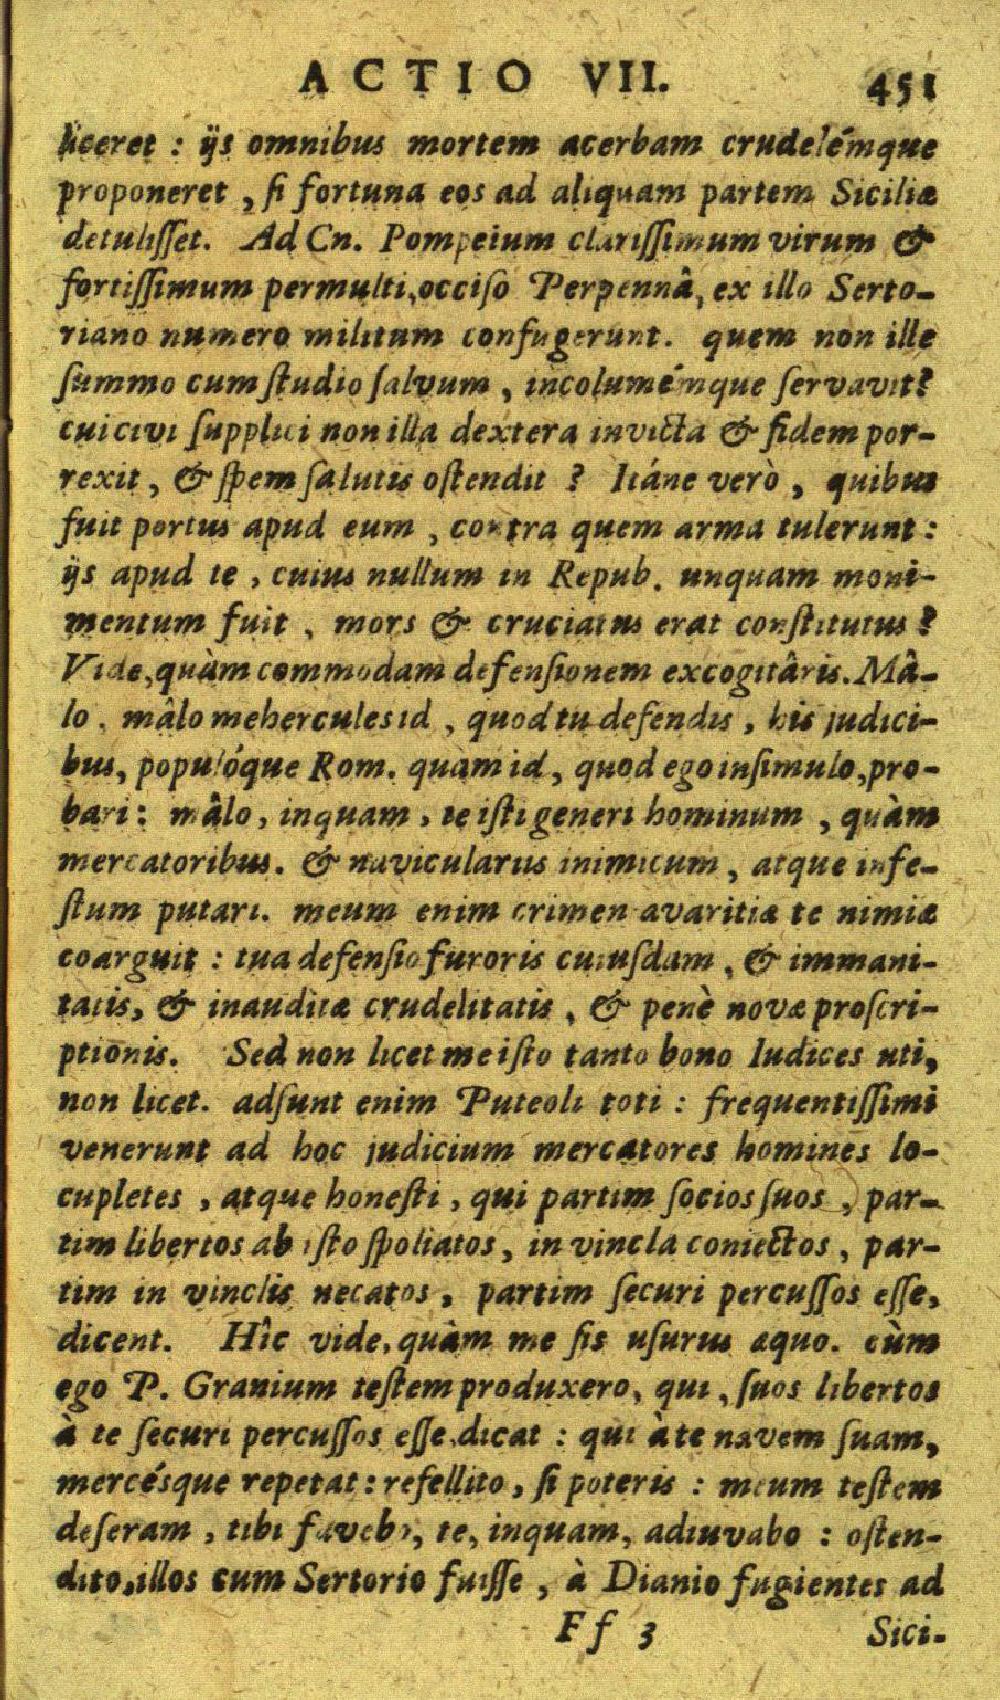 ACTIO VII. 451
liceret : ijs omnibus mortem acerbam crudelémque
proponeret , ſi fortuna eos ad aliquam partem Siciliæ
detuliſſet. Ad Cn. Pompeium clariſſimum virum &
fortiſſimum permulti, occiſo Perpennâ, ex illo Serto-
riano numero militum confugerunt. quem non ille
ſummo cum ſtudio ſalvum , incolumémque ſervavit?
cui civi ſupplici non illa dextera invicta & fidem por-
rexit, & ſpem ſalutis oſtendit ? Itáne verò , quibus
fuit portus apud eum , contra quem arma tulerunt :
ijs apud te , cuius nullum in Repub. unquam moni-
mentum fuit , mors & cruciatus erat conſtitutus ?
Vide, quàm commodam defenſionem excogitâris. Mâ-
lo , mâlo mehercules id , quod tu defendis , his judici-
bus, populóque Rom. quàm id, quod ego inſimulo, pro-
bari : mâlo, inquam , te iſti generi hominum , quàm
mercatoribus. & naviculariis inimicum , atque infe-
ſtum putari. meum enim crimen avaritiæ te nimiæ
coarguit : tua defenſio furoris cuiuſdam , & immani-
tatis, & inauditæ crudelitatis , & penè novæ proſcri-
ptionis. Sed non licet me iſto tanto bono Iudices uti,
non licet. adſunt enim Puteoli toti : frequentiſſimi
venerunt ad hoc judicium mercatores homines lo-
cupletes , atque honeſti , qui partim ſocios ſuos , par-
tim libertos ab iſto ſpoliatos, in vincla coniectos , par-
tim in vinclis necatos , partim ſecuri percuſſos eſſe,
dicent. Hîc vide, quàm me ſis uſurus æquo. cùm
ego P. Granium teſtem produxero, qui , ſuos libertos
à te ſecuri percuſſos eſſe, dicat : qui à te navem ſuam,
mercésque repetat : refellito , ſi poteris : meum teſtem
deſeram , tibi favebo, te, inquam, adiuvabo : oſten-
dito, illos cum Sertorio fuiſſe , à Dianio fugientes ad
Ff 3 Sici-